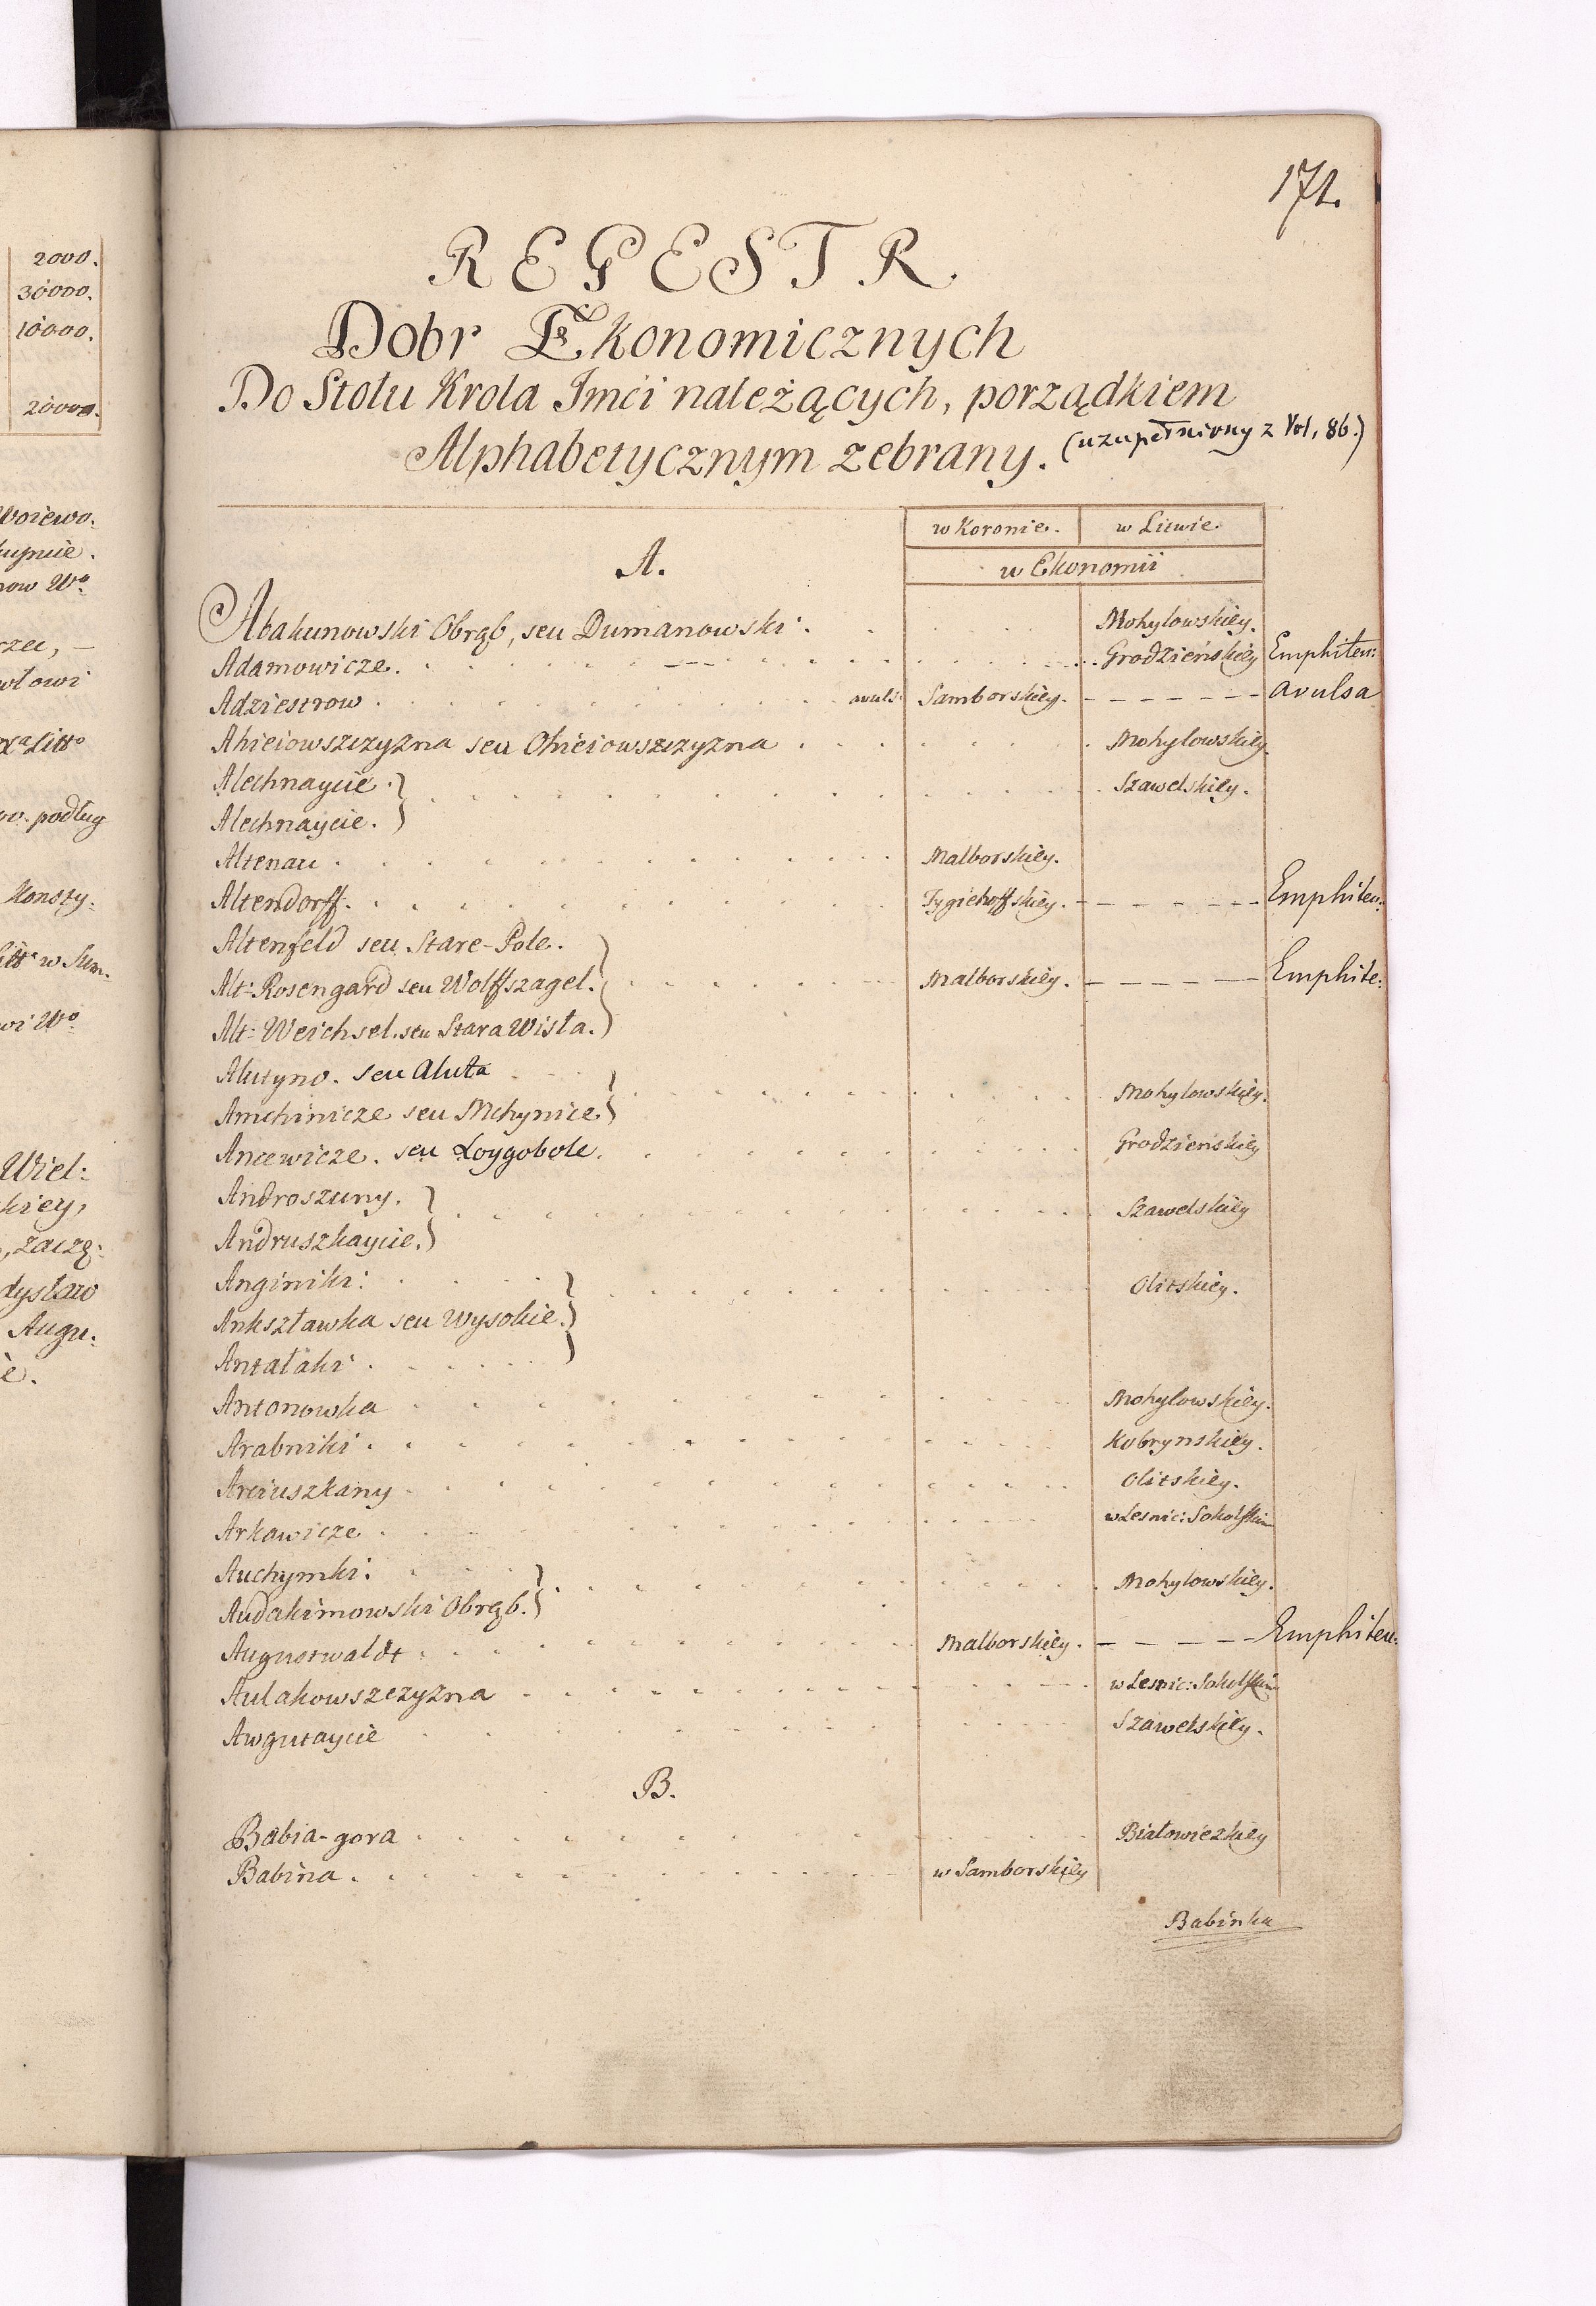 2000.
30000.
10000.
20000.
Woiewo.
kupnie.
now Wº
rzec, –
włowi
xª Littº
go. podług
Konsty:
Littª w Sum.
wi Wº
Wiel:
kiey,
, zaczę:
dysław
Augu:
e.
171.
REGESTR
Dobr Ekonomicznych
Do Stołu Krola Jmci należących, porządkiem
Alphabetycznym zebrany. (uzupełniony z Vol, 86.)
w Koronie. w Litwie.
A. w Ekonomii
Abakunowski Obrąb, seu Dumanowski. Mohylowskiey.
Adamowicze. Grodzieńskiey Emphiteu:
Adziestrow avuls: Samborskiey. avulsa
Ahieiowszczyzna seu Ohieiowszczyzna Mohylowskiey.
Alechnaycie. Szawelskiey.
Alechnaycie.
Altenau Malborskiey.
Altendorff. Tygiehoffskiey. Emphiteu:
Altenfeld seu Stare-Pole.
Alt-Rosengard seu Wolffszagel. Malborskiey. Emphite:
Alt-Weichsel. seu Stara Wisła.
Alutyno. seu Aluta
Amchinicze seu Mchynice. Mohylowskiey.
Ancewicze. seu Łoygobole. Grodzieńskiey
Androszuny. Szawelskiey
Andruszkaycie.
Anginiki: Olitskiey.
Anksztawka seu Wysokie.
Antałaki
Antonowka Mohylowskiey.
Arabniki Kobrynskiey.
Arciuszkany Olitskiey.
Arkawicze w Lesnic: Sokolskim
Auchymki: Mohylowskiey.
Audakimowski Obrąb.
Augustwaldt Malborskiey. Emphiteu:
Aulakowszczyzna w Lesnic: Sokolskim
Awgutaycie Szawelskiey.
B.
Babia-gora Białowiezkiey
Babina w Samborskiey
Babinka